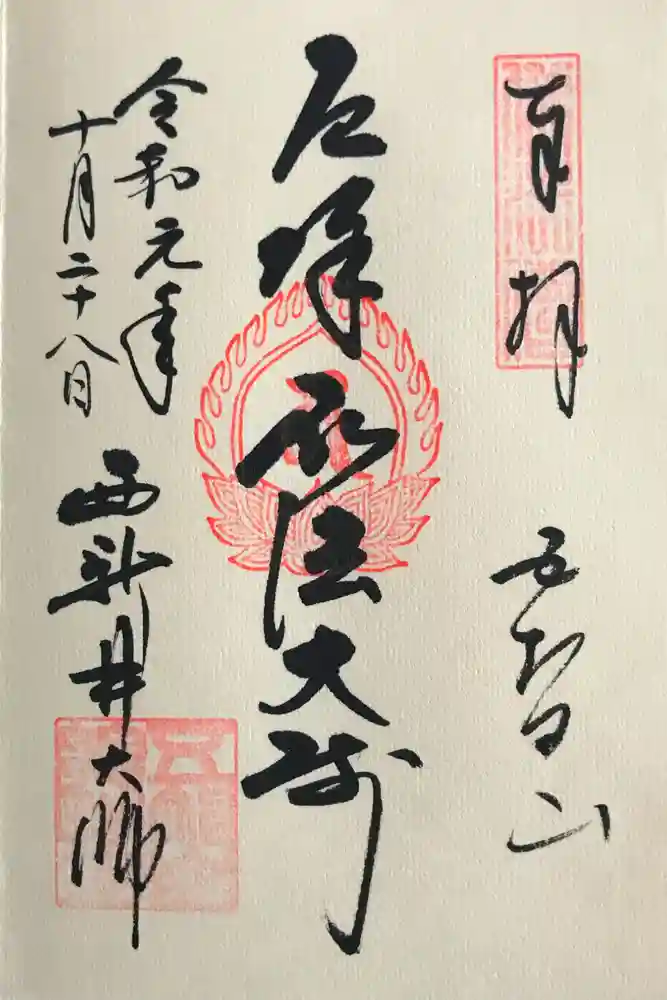 奉拝
五智山
厄除弘法大師
令和元年
十月二十八日
西新井大師